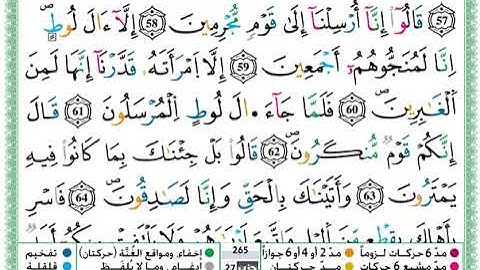 57 قَالُوٓا۟ إِنَّآ أُرْسِلْنَآ إِلَىٰ قَوْمٖ مُّجْرِمِينَ 58 إِلَّآ ءَالَ لُوطٍ
اِنَّا لَمُنَجُّوهُمُۥٓ أَجْمَعِينَ 59 إِلَّا اَمْرَأَتَهُۥ قَدَّرْنَآ إِنَّهَا لَمِنَ
اَلْغَٰبِرِينَ 60 فَلَمَّا جَآءَ اَلَ لُوطٍ اِلْمُرْسَلُونَ 61 قَالَ
إِنَّكُمْ قَوْمٞ مُّنكَرُونَ 62 قَالُوا۟ بَلْ جِئْنَٰكَ بِمَا كَانُوا۟ فِيهِ
يَمْتَرُونَ 63 وَأَتَيْنَٰكَ بِالْحَقِّ وَإِنَّا لَصَٰدِقُونَ 64 فَاسْرِ
مدّ 6 حركات لزوماً مدّ 2 أو 4 أو 6 جوازاً 265 إخفاء، ومواقع الغُنَّة (حركتان) تفخيم
مدّ مشبع 6 حركات مدّ حركتان 27 إدغام، وما لا يُلفَظ قلقلة